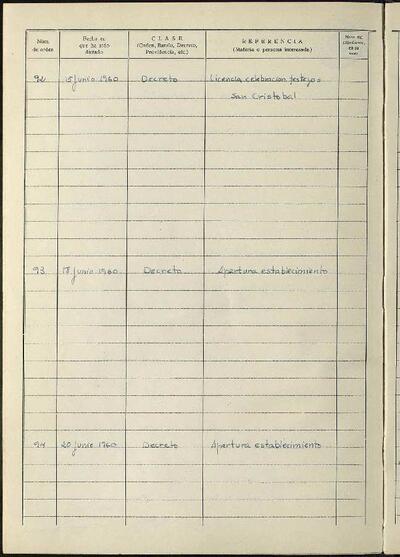 Núm. de orden
Fecha en que ha sido dictado
CLASE
(Orden, Bando, Decreto, Providencia, etc.)
REFERENCIA
(Materia o persona interesada)
92 15 junio 1960 Decreto Licencia celebracion festejos
San Cristobal
93 18 junio 1960 Decreto Apertura establecimiento
94 20 junio 1960 Decreto Apertura establecimiento